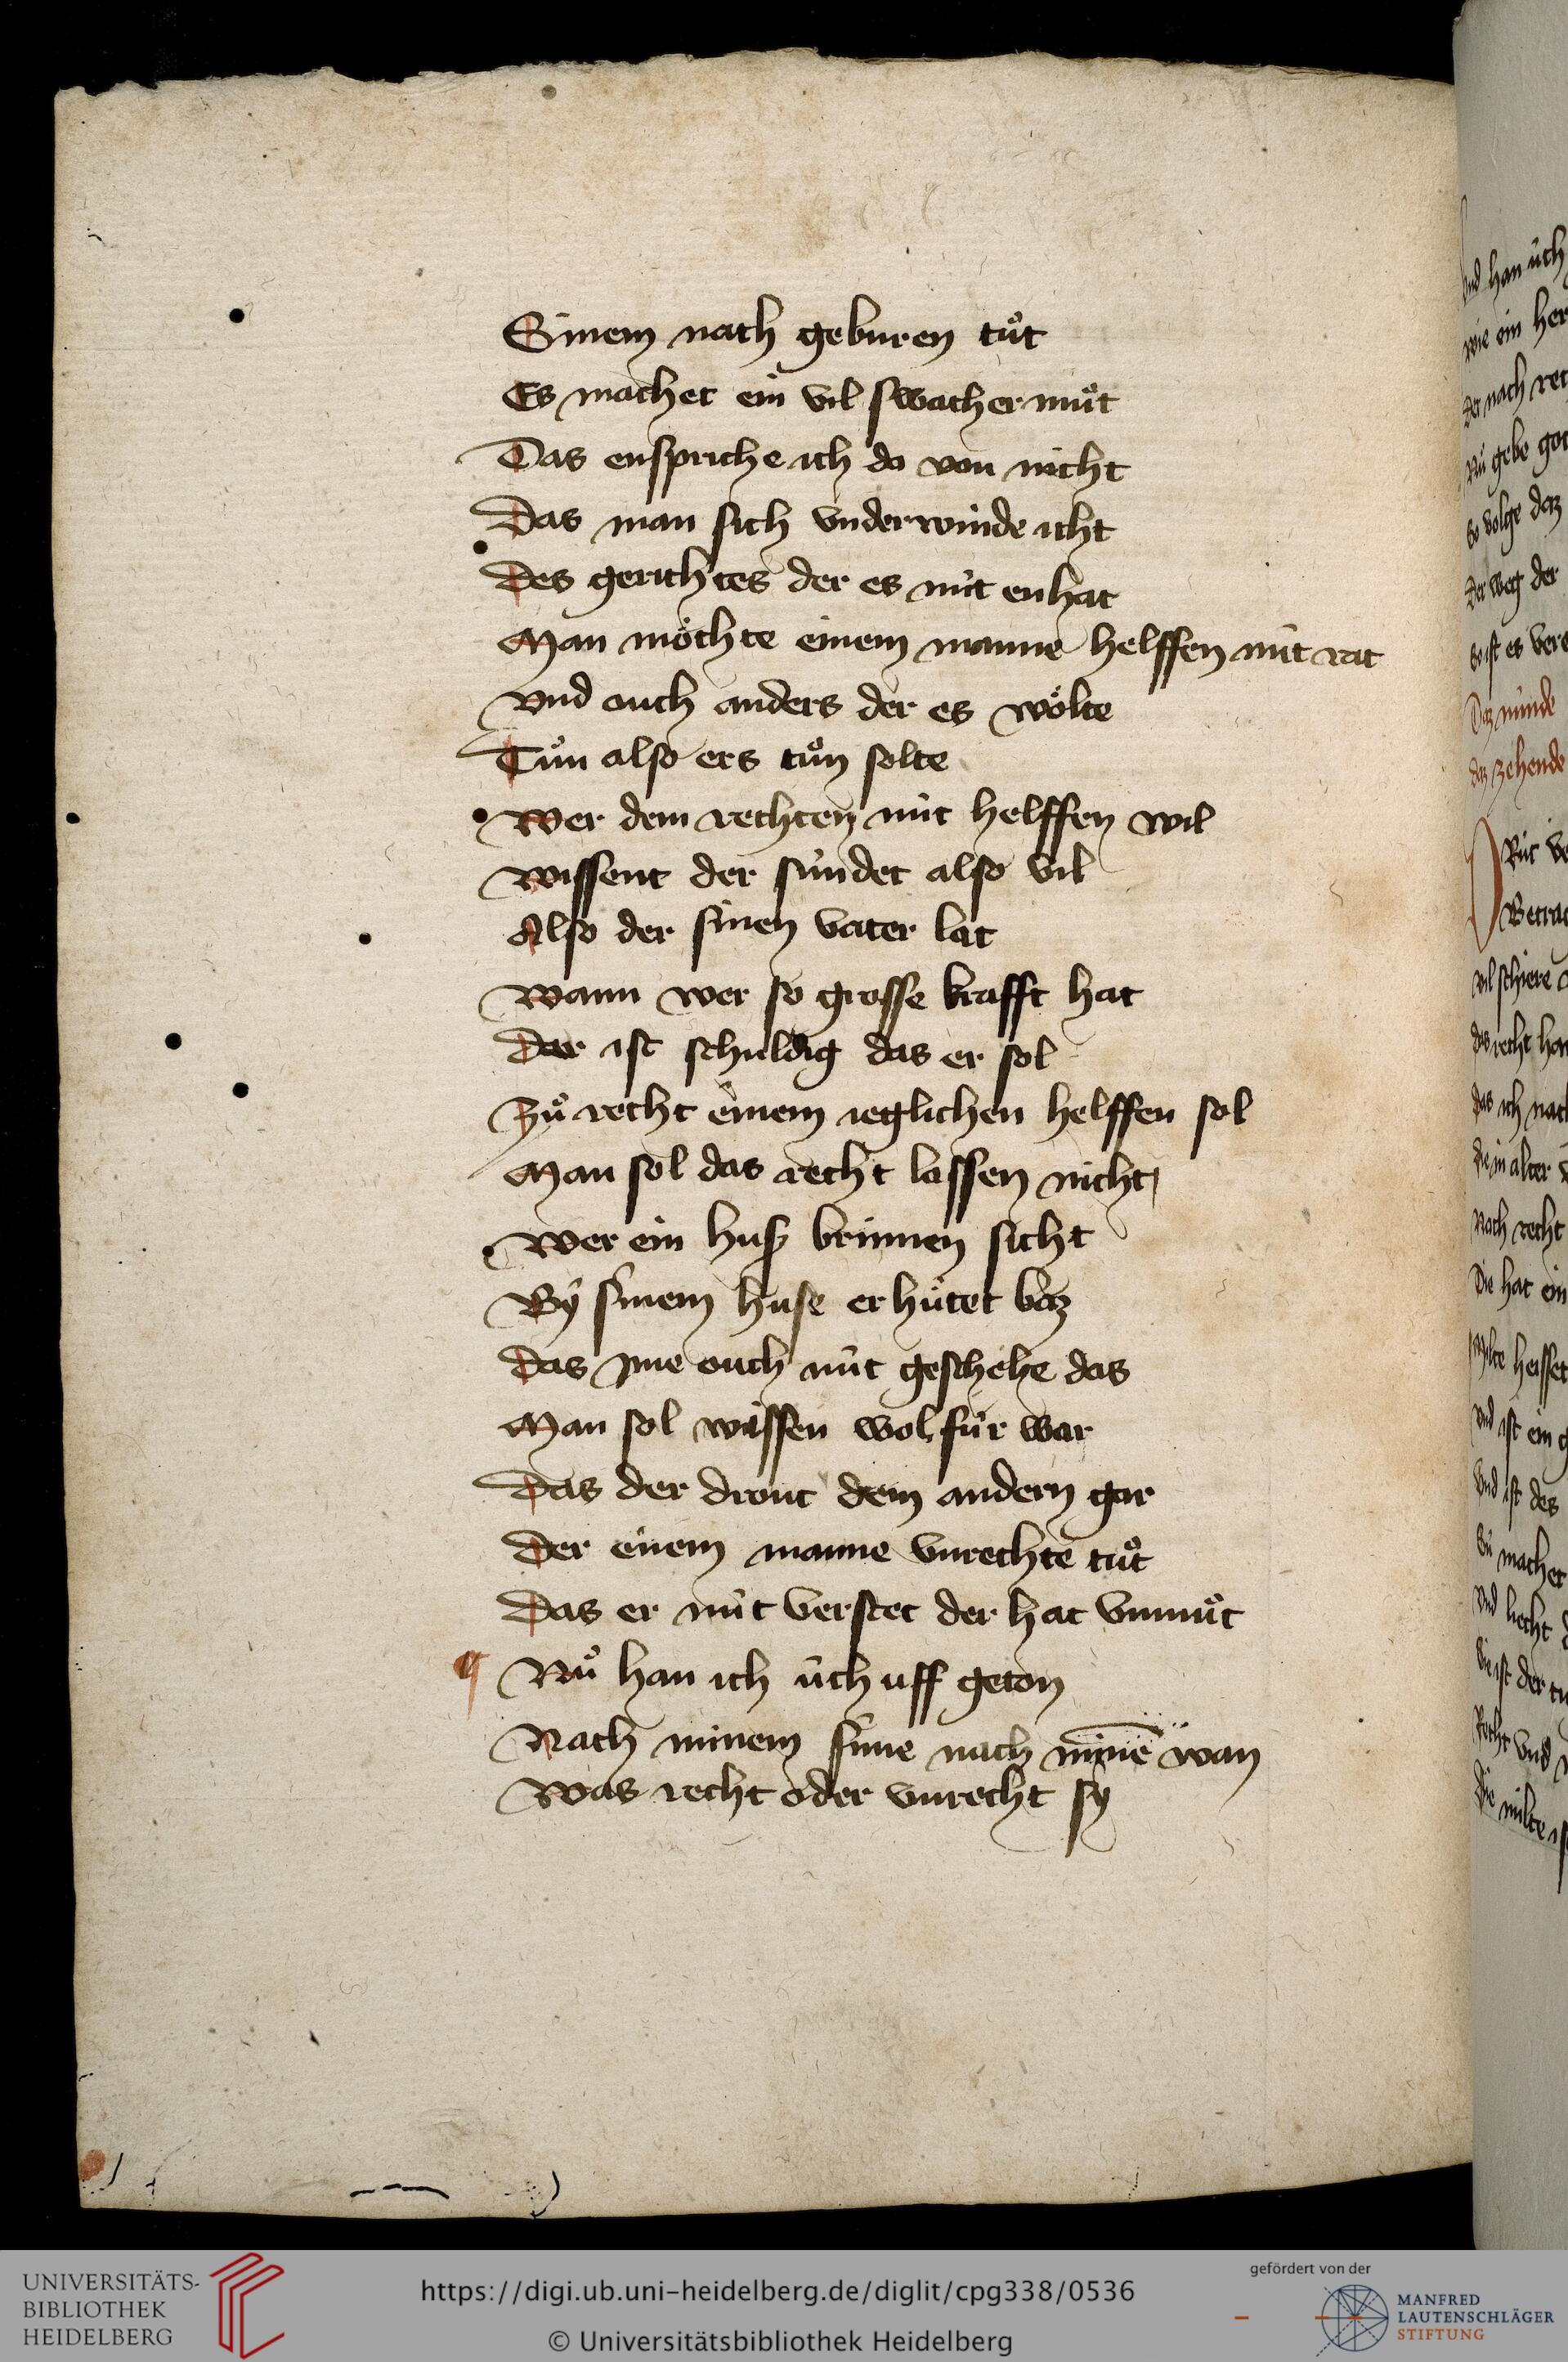 Sinem nach geburen tuͦt
Es machet ein vil swacher muͦt
Das enspriche ich do von nicht
Das man sich vnderwinde icht
Des gerichtes der es nit enhat
Man möchte einem manne helffen mit rat
Vnd ouch anders der es wölte
Tuͦn also ers tuͦn solte
Wer dem rechten nit helffen wil
Wissent der sündet also vil
Also der sinen vater lat
Wann wer so grosse krafft hat
Der ist schuldig das er sol
Zuͦ recht einem ieglichen helffen sol
Man sol das recht lassen nicht
Wer ein huß brinnen sicht
By sinem huse er hütet baz
Das ime ouch nit geschehe das
Man sol wissen wol für war
Das der drout dem andern gar
Der einem manne vnrechte tuͦt
Das er nit verstet der hat vnmuͦt
Nuͦ han ich üch uff geton
Nach minem sinne nach minē wan
Was recht oder vnrecht sy
vnd han üch
wie ein her
der nach rec
Nü gebe got
So volge daz
Der weg der
So ist es vere
Daz nünde
daz zehende
vil schiere
das recht han
das ich nach
die in alter
Nach recht
Die hat ein
Milte heisset
vnd ist ein g
Vnd ist des
Sü machet
Vnd liecht
Sie ist der
Recht vnd
Die milte
UNIVERSITÄTS-
BIBLIOTHEK
HEIDELBERG
https://digi.ub.uni-heidelberg.de/diglit/cpg338/0536
© Universitätsbibliothek Heidelberg
gefördert von der
MANFRED
LAUTENSCHLÄGER
STIFTUNG